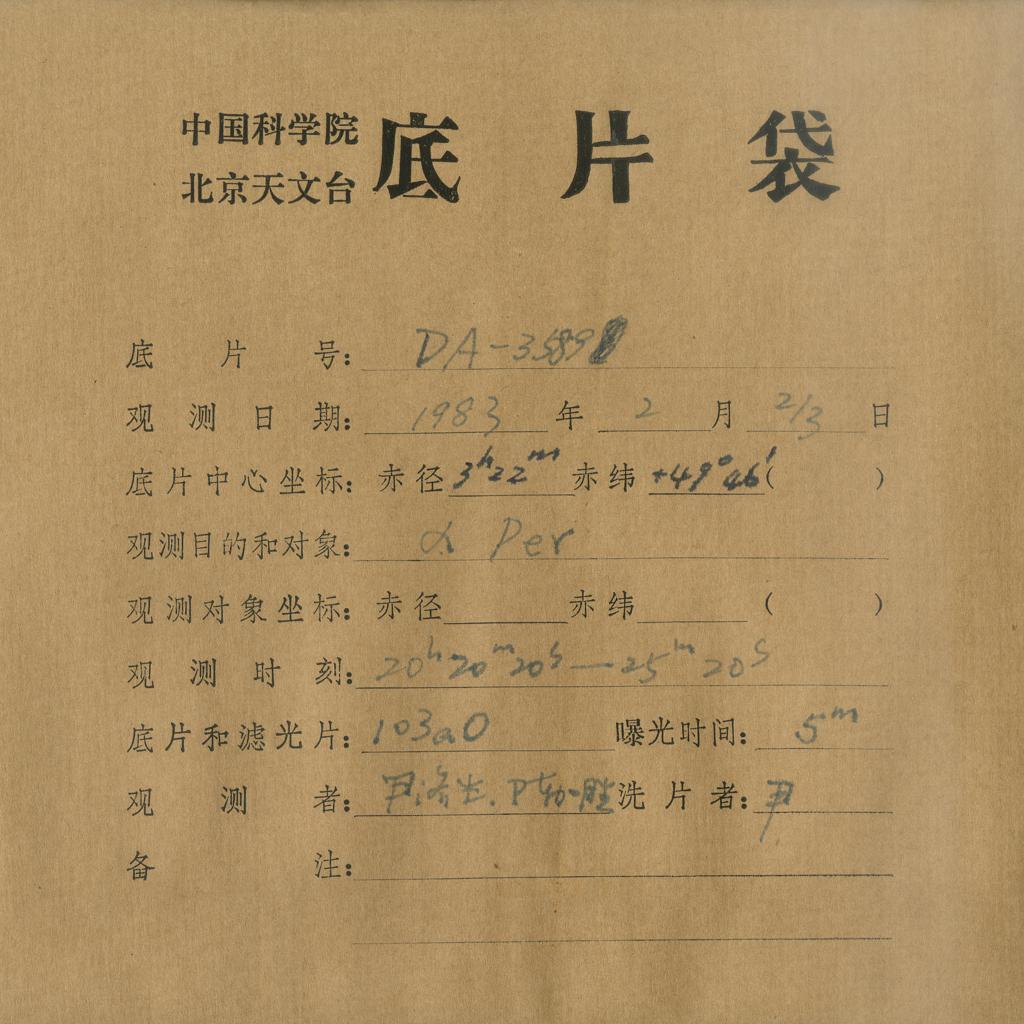 中国科学院
北京天文台
底片袋
底片号：DA-3589
观测日期：1983年2月2/3日
底片中心坐标：赤径3h22m赤纬+49°46′(    )
观测目的和对象：α Per
观测对象坐标：赤径    赤纬    (    )
观测时刻：20h20m20s—25m20s
底片和滤光片：103aO 曝光时间：5m
观测者：尹 洗片者：尹
备注：